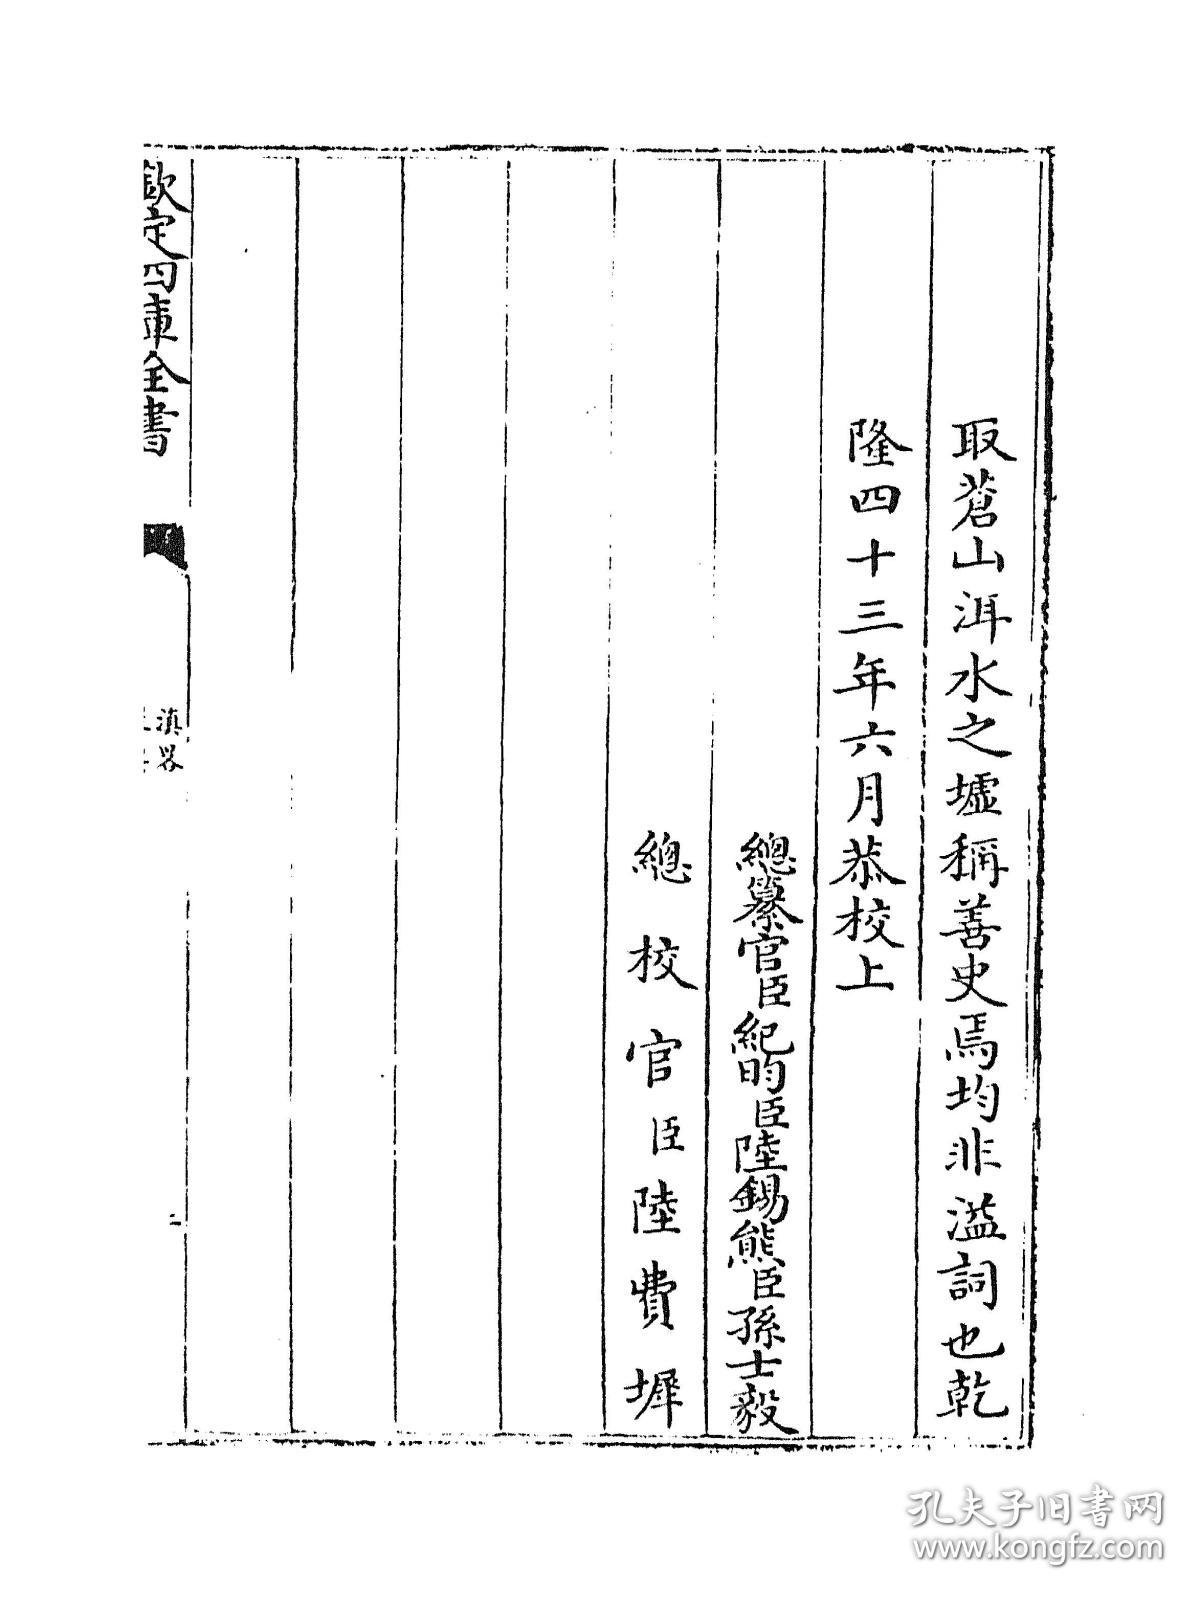 取蒼山洱水之墟稱善史焉均非溢詞也乾
隆四十三年六月恭校上
總纂官臣紀昀臣陸錫熊臣孫士毅
總校官臣陸費墀
欽定四庫全書
滇畧
二
孔夫子旧书网
www.kongfz.com